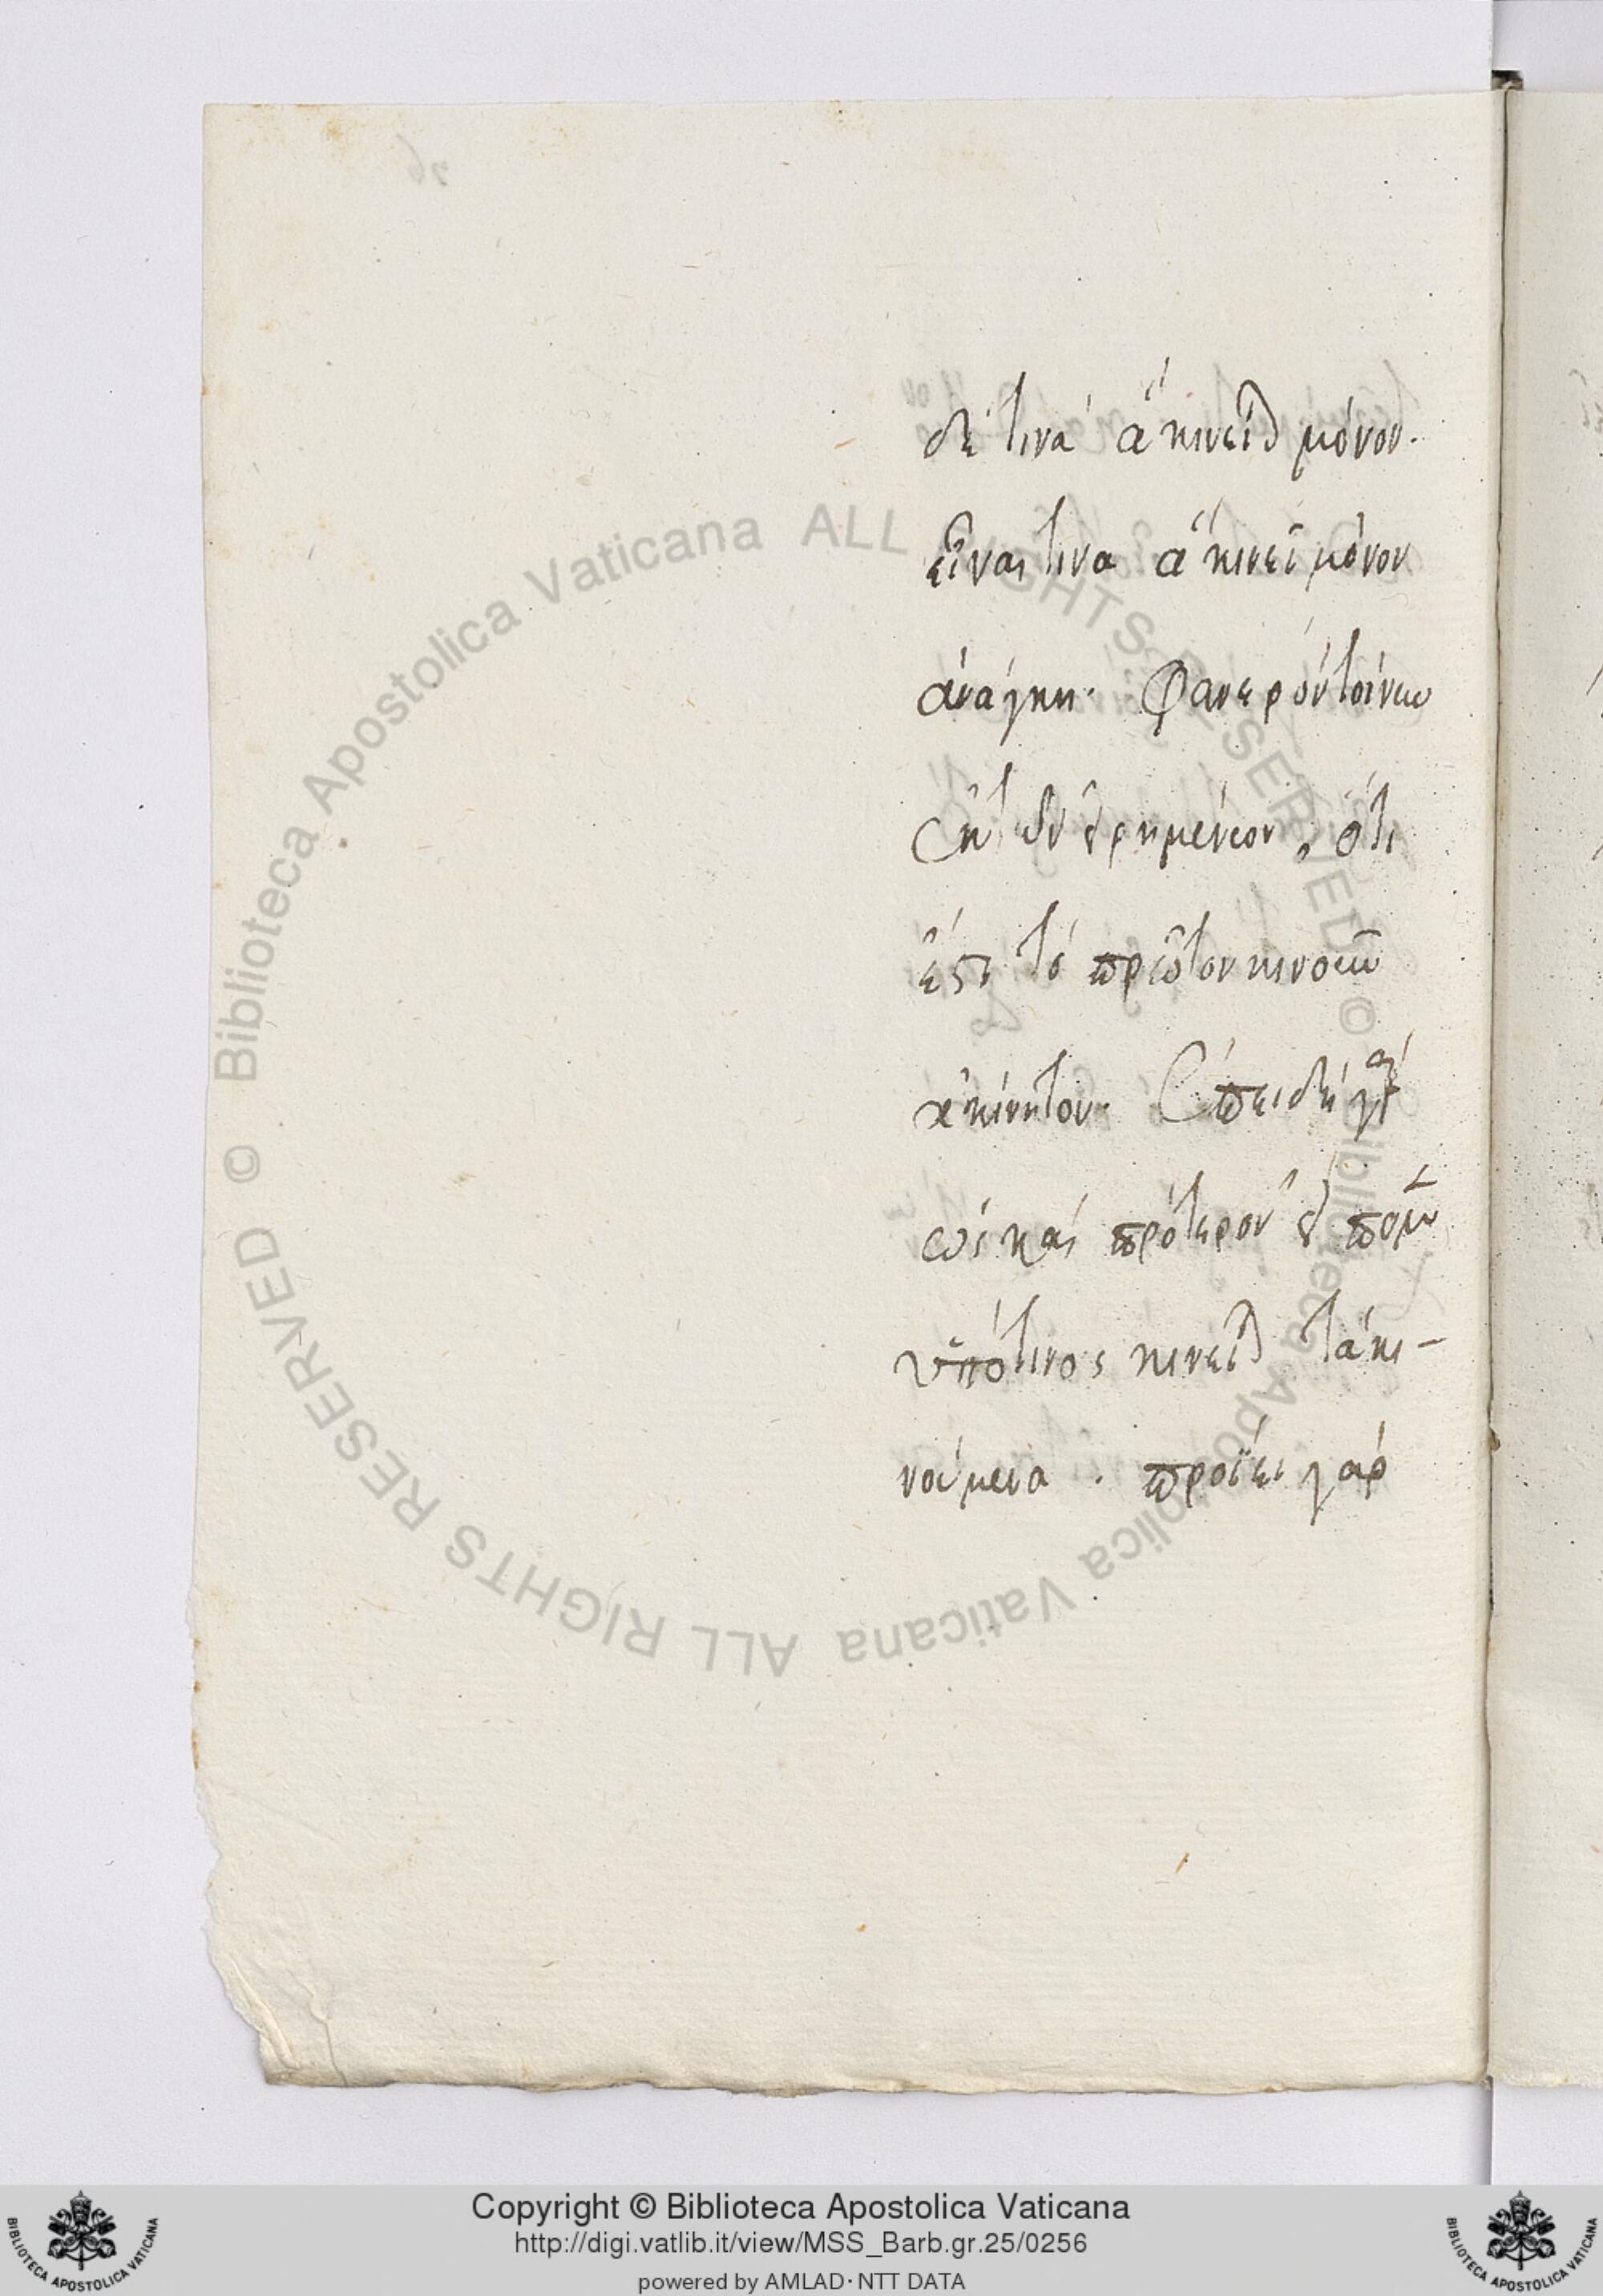 δέ τινα ἃ κινεῖται μόνον.
εἶναί τινα ἃ κινεῖ μόνον
ἀνάγκη. Φανερὸν τοίνυν
ἐκ τῶν εἰρημένων, ὅτι
ἐστὶ τὸ πρῶτον κινοῦν
ἀκίνητον. Ἐπειδὴ γὰρ
ὡς καὶ πρότερον εἴπομεν
ὑπό τινος κινεῖται τὰ κι-
νούμενα. προΐει γὰρ
Biblioteca Apostolica Vaticana ALL RIGHTS RESERVED ©
Biblioteca Apostolica Vaticana ALL RIGHTS RESERVED ©
Copyright © Biblioteca Apostolica Vaticana
http://digi.vatlib.it/view/MSS_Barb.gr.25/0256
powered by AMLAD·NTT DATA
BIBLIOTECA APOSTOLICA VATICANA
BIBLIOTECA APOSTOLICA VATICANA